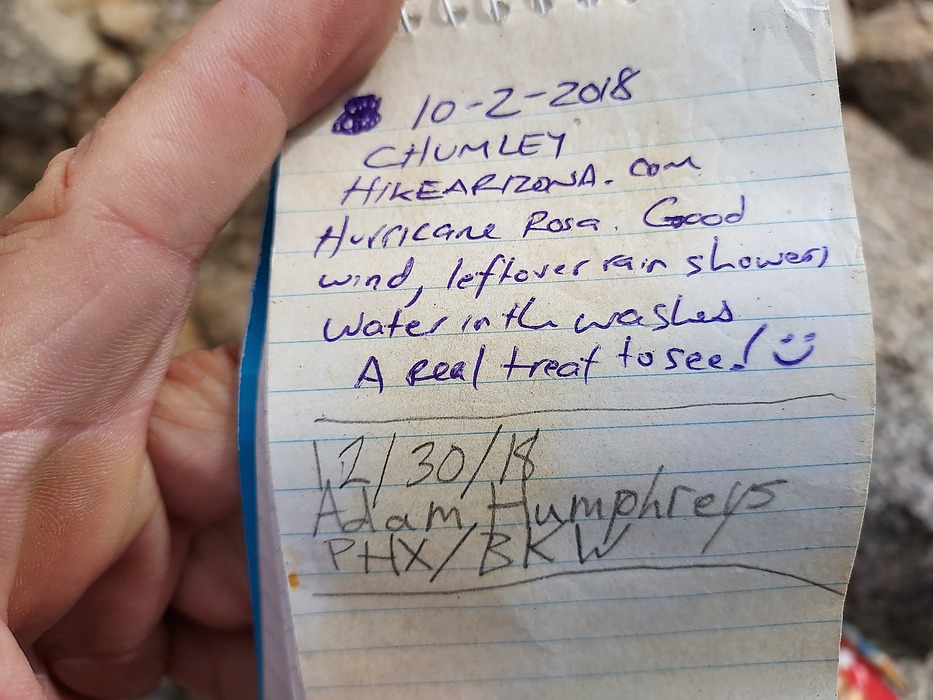 10-2-2018
CHUMLEY
HIKEARIZONA.com
Hurricane Rosa. Good
wind, leftover rain showers,
Water in the washes
A real treat to see! :)
12/30/18
Adam Humphreys
PHX/BKW